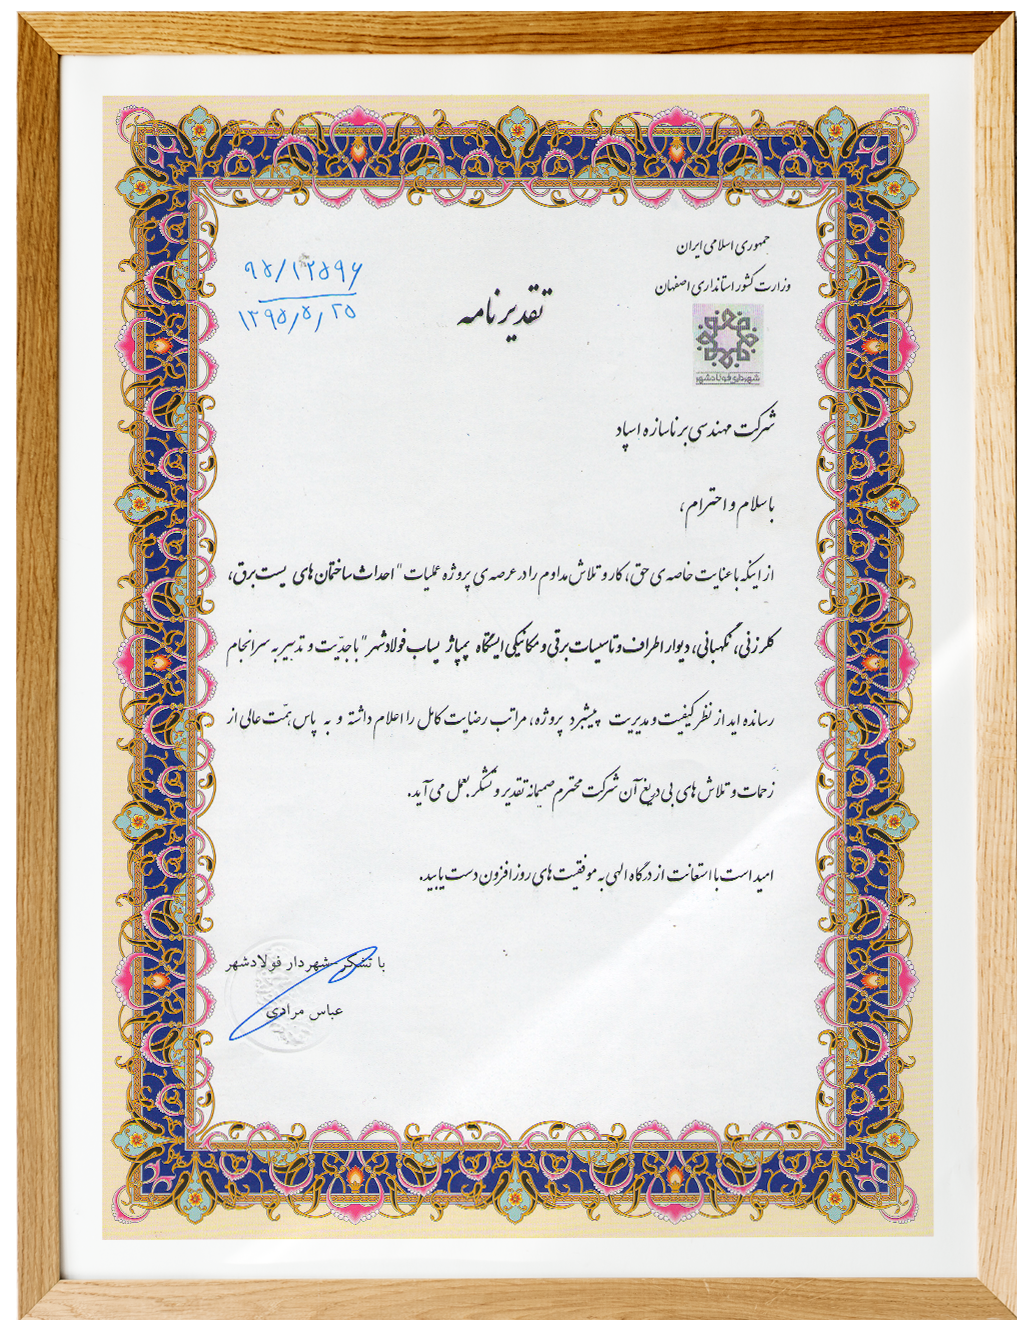 جمهوری اسلامی ایران
وزارت کشور استانداری اصفهان
شهرداری فولادشهر
۹۵/۱۲۵۹۶
۱۳۹۵/۵/۲۵
تقدیرنامه
شرکت مهندسی برناسازه اسپاد
باسلام و احترام ،
از اینکه با عنایت خاصه ی حق، کار و تلاش مداوم را در عرصه ی پروژه عملیات "احداث ساختمان های پست برق،
کلرزنی، نگهبانی، دیوار اطراف و تاسیسات برقی و مکانیکی ایستگاه پمپاژ پساب فولادشهر" با جدّیت و تدبیر به سرانجام
رسانده اید از نظر کیفیت و مدیریت پیشبرد پروژه، مراتب رضایت کامل را اعلام داشته و به پاس همّت عالی از
زحمات و تلاش های بی دریغ آن شرکت محترم صمیمانه تقدیر و تشکر بعمل می آید.
امید است با استعانت از درگاه الهی به موفقیت های روزافزون دست یابید.
با تشکر شهردار فولادشهر
عباس مرادی